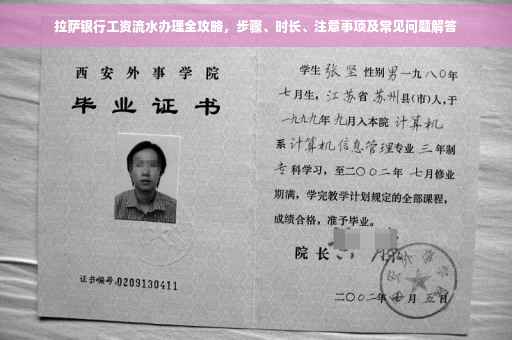 拉萨银行工资流水办理全攻略，步骤、时长、注意事项及常见问题解答
西安外事学院
毕业证书
证书编号:0209130411
学生 张坚 性别 男 一九八〇年
七月生，江苏省 苏州 县(市)人，于
一九九九年 九月入本院 计算机
系 计算机信息管理 专业 三 年制
专 科学习，至二〇〇二年 七月修业
期满，学完教学计划规定的全部课程，
成绩合格，准予毕业。
院长
二〇〇二年 七 月 五 日